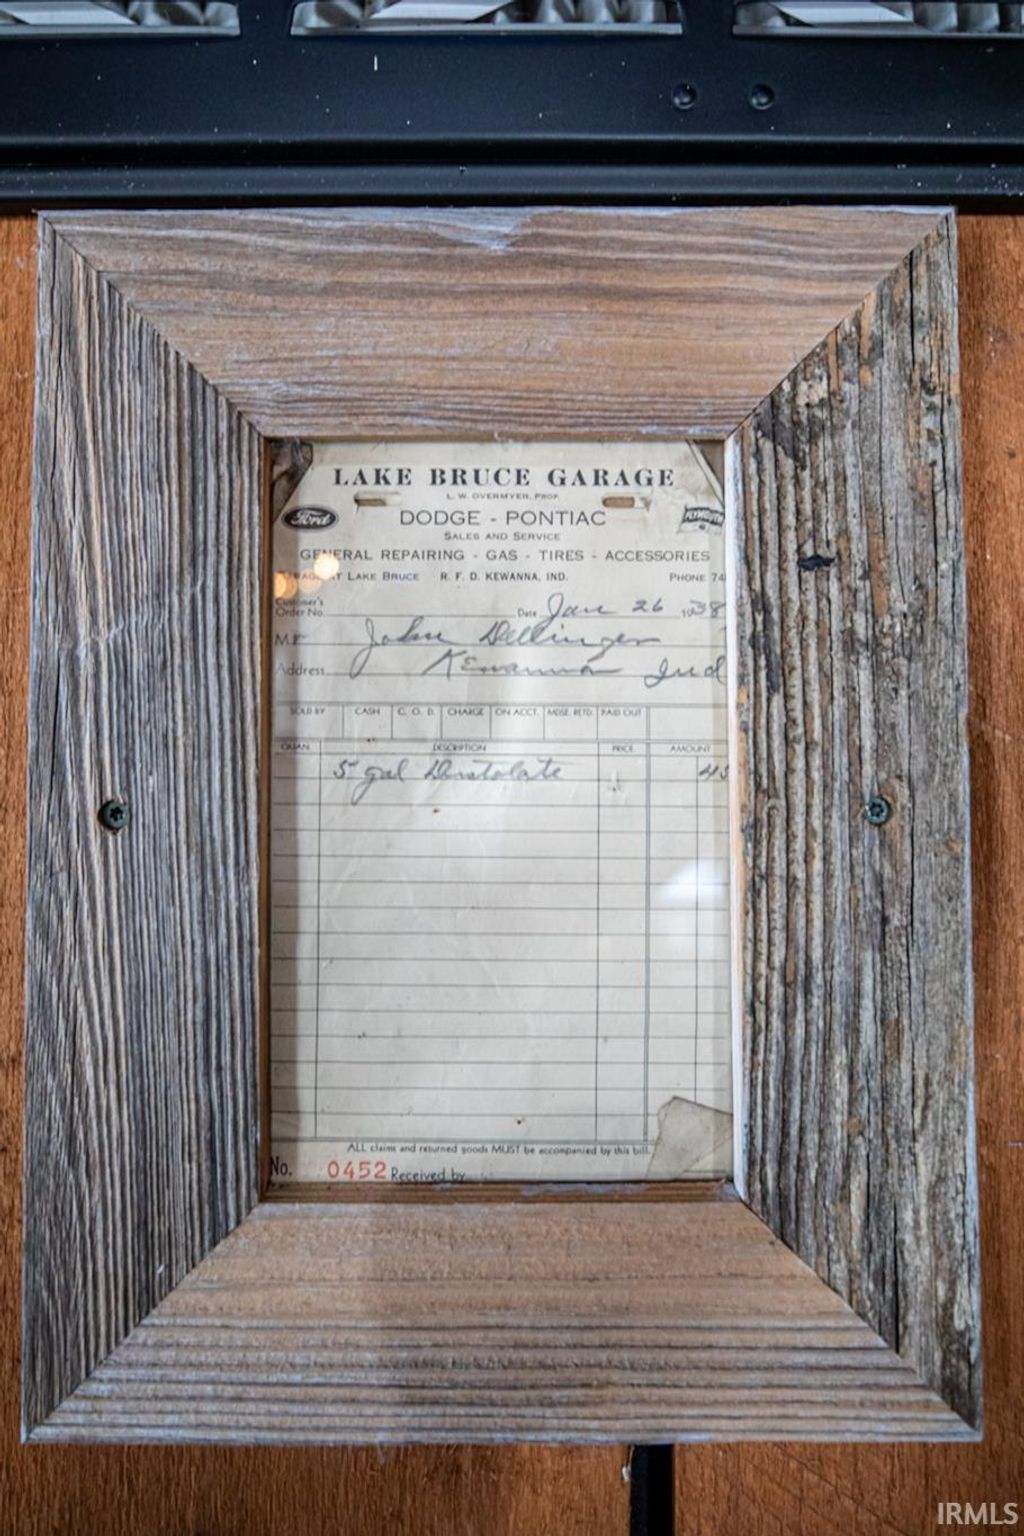 LAKE BRUCE GARAGE
L. W. OVERMYER, PROP.
Ford
DODGE - PONTIAC
PLYMOUTH
SALES AND SERVICE
GENERAL REPAIRING - GAS - TIRES - ACCESSORIES
AT LAKE BRUCE R. F. D. KEWANNA, IND. PHONE 74
Customer's
Order No. Date Jan 26 1938
M John Dillinger
Address Kewanna Ind
SOLD BY CASH C. O. D. CHARGE ON ACCT. MDSE. RETD. PAID OUT
QUAN. DESCRIPTION PRICE AMOUNT
5 gal Distolate 45
ALL claims and returned goods MUST be accompanied by this bill.
No. 0452 Received by
IRMLS